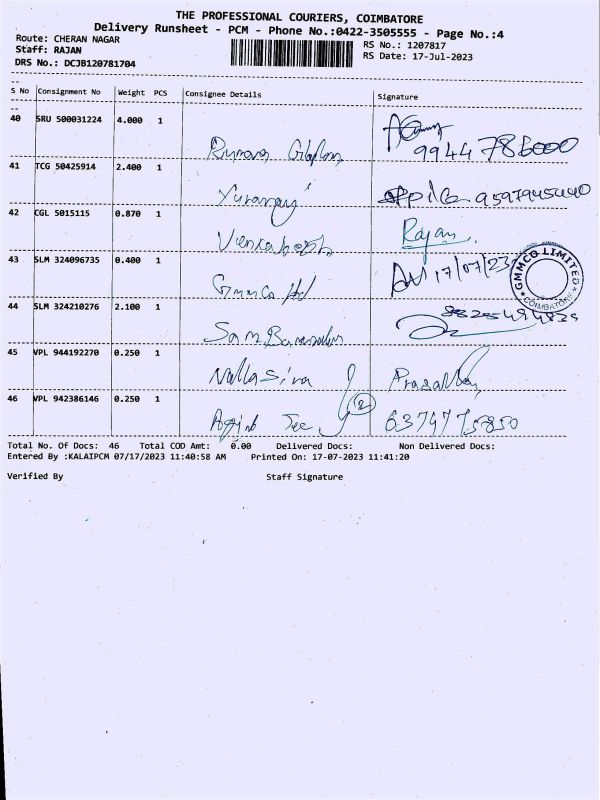 THE PROFESSIONAL COURIERS, COIMBATORE
Delivery Runsheet - PCM - Phone No.:0422-3505555 - Page No.:4
Route: CHERAN NAGAR
RS No.: 1207817
Staff: RAJAN
RS Date: 17-Jul-2023
DRS No.: DCJB120781704
S No Consignment No Weight PCS Consignee Details Signature
40 SRU 500031224 4.000 1
9944786000
41 TCG 50425914 2.400 1
42 CGL 5015115 0.870 1 Rajan
43 SLM 324096735 0.400 1 Gmmco ltd 17/07/23
GMMCO LIMITED
COIMBATORE
44 SLM 324210276 2.100 1
45 VPL 944192270 0.250 1 Nallasiva
46 VPL 942386146 0.250 1 2
Total No. Of Docs: 46 Total COD Amt: 0.00 Delivered Docs: Non Delivered Docs:
Entered By :KALAIPCM 07/17/2023 11:40:58 AM Printed On: 17-07-2023 11:41:20
Verified By Staff Signature